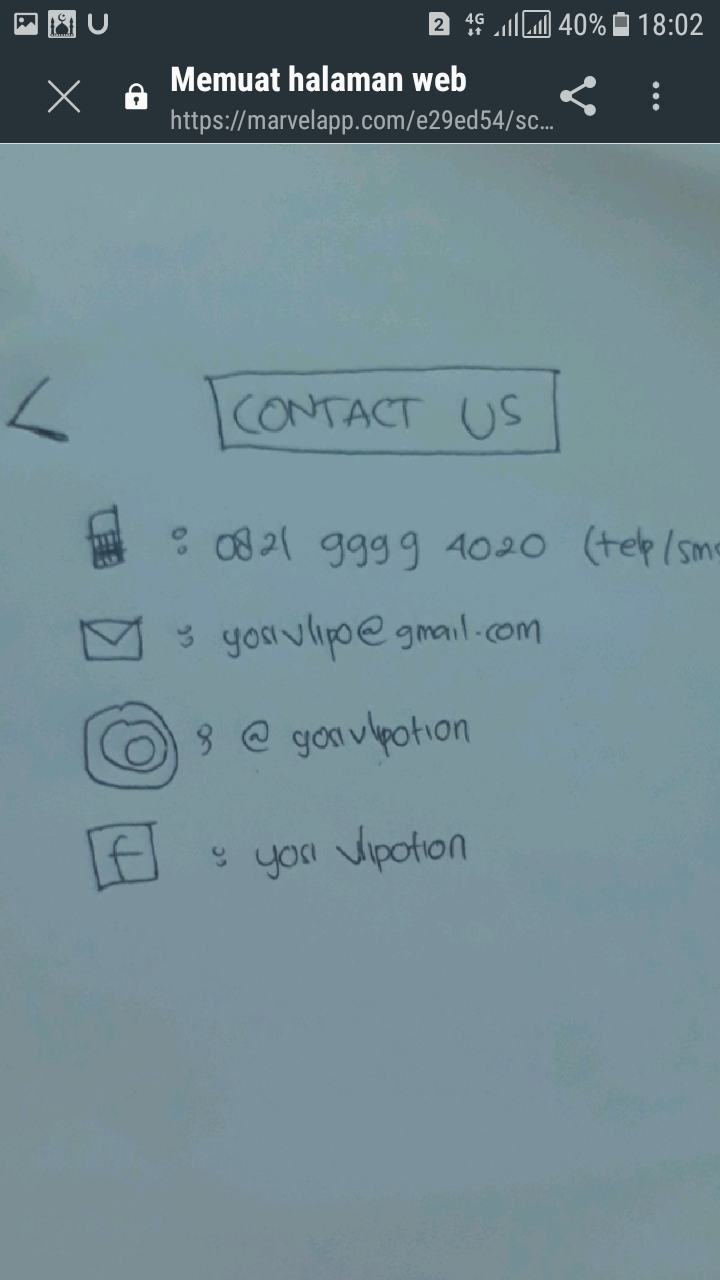 2 4G 40% 18:02
Memuat halaman web
https://marvelapp.com/e29ed54/sc...
<
CONTACT US
: 0821 9999 4020 (telp/sms
: yosivlipo@gmail.com
: @ yosivlipotion
f : yosi vlipotion